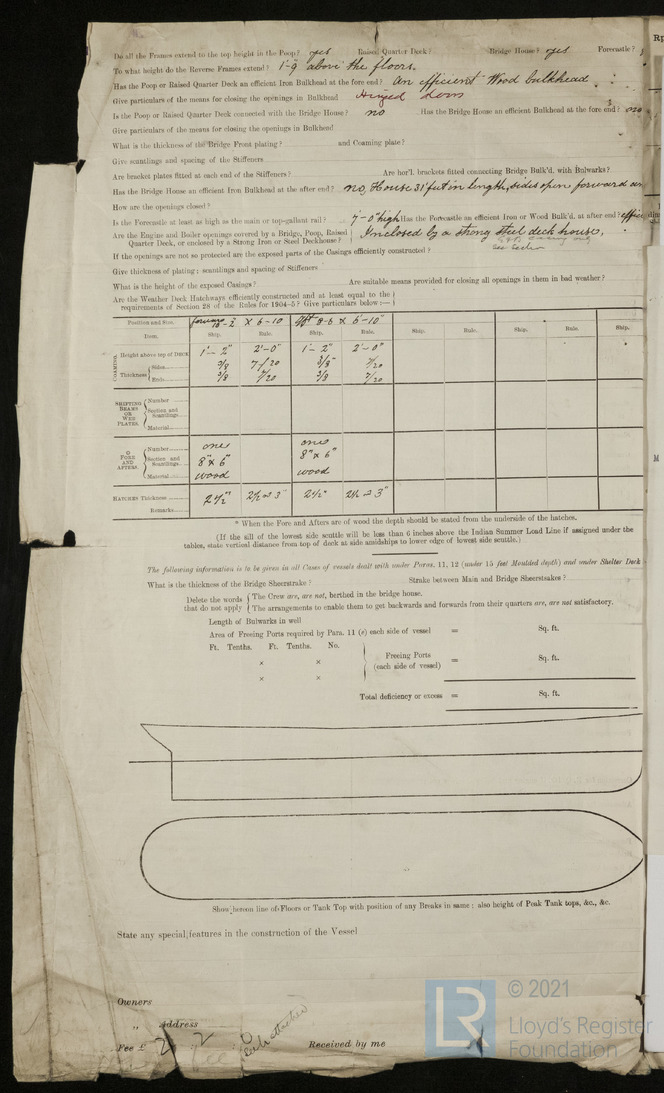 Do all the Frames extend to the top height in the Poop? yes Raised Quarter Deck? Bridge House? yes Forecastle?
To what height do the Reverse Frames extend? 1'-9 above the floors.
Has the Poop or Raised Quarter Deck an efficient Iron Bulkhead at the fore end? An efficient Wood bulkhead
Give particulars of the means for closing the openings in Bulkhead Hinged doors
Is the Poop or Raised Quarter Deck connected with the Bridge House? no Has the Bridge House an efficient Bulkhead at the fore end?
Give particulars of the means for closing the openings in Bulkhead
What is the thickness of the Bridge Front plating? and Coaming plate?
Give scantlings and spacing of the Stiffeners
Are bracket plates fitted at each end of the Stiffeners? Are hor'l. brackets fitted connecting Bridge Bulk'd. with Bulwarks?
Has the Bridge House an efficient Iron Bulkhead at the after end? no, House 31 feet in length, sides open forward
How are the openings closed?
Is the Forecastle at least as high as the main or top-gallant rail? 7'-0" high Has the Forecastle an efficient Iron or Wood Bulk'd. at after end?
Are the Engine and Boiler openings covered by a Bridge, Poop, Raised Quarter Deck, or enclosed by a Strong Iron or Steel Deckhouse? Inclosed by a strong steel deck house,
If the openings are not so protected are the exposed parts of the Casings efficiently constructed?
Give thickness of plating; scantlings and spacing of Stiffeners
What is the height of the exposed Casings? Are suitable means provided for closing all openings in them in bad weather?
Are the Weather Deck Hatchways efficiently constructed and at least equal to the
requirements of Section 28 of the Rules for 1904-5? Give particulars below:—
Position and Size. forward 10-2 X 6-10 Aft 8-6 X 6'-10"
Item. Ship. Rule. Ship. Rule. Ship. Rule. Ship. Rule. Ship.
COAMING. Height above top of DECK 1'-2" 2'-0" 1'-2" 2'-0"
Thickness Sides 3/8 7/20 3/8" 7/20
Ends 3/8 7/20 3/8 7/20
SHIFTING BEAMS OR WEB PLATES. Number
Section and Scantlings
Material
* FORE AND AFTERS. Number one one
Section and Scantlings 8" x 6" 8" x 6"
Material wood wood
HATCHES Thickness 2 1/2" 2 1/2 = 3" 2 1/2" 2 1/2 = 3"
Remarks
* When the Fore and Afters are of wood the depth should be stated from the underside of the hatches.
(If the sill of the lowest side scuttle will be less than 6 inches above the Indian Summer Load Line if assigned under the
tables, state vertical distance from top of deck at side amidships to lower edge of lowest side scuttle.)
The following information is to be given in all Cases of vessels dealt with under Paras. 11, 12 (under 15 feet Moulded depth) and under Shelter Deck
What is the thickness of the Bridge Sheerstrake? Strake between Main and Bridge Sheerstrakes?
Delete the words that do not apply The Crew are, are not, berthed in the bridge house.
The arrangements to enable them to get backwards and forwards from their quarters are, are not satisfactory.
Length of Bulwarks in well
Area of Freeing Ports required by Para. 11 (e) each side of vessel = Sq. ft.
Ft. Tenths. Ft. Tenths. No.
× × Freeing Ports (each side of vessel) = Sq. ft.
× ×
Total deficiency or excess = Sq. ft.
Show hereon line of Floors or Tank Top with position of any Breaks in same; also height of Peak Tank tops, &c., &c.
State any special features in the construction of the Vessel
Owners
" Address
Fee £ 2 : 2 : Received by me
© 2021
LR Lloyd's Register
Foundation